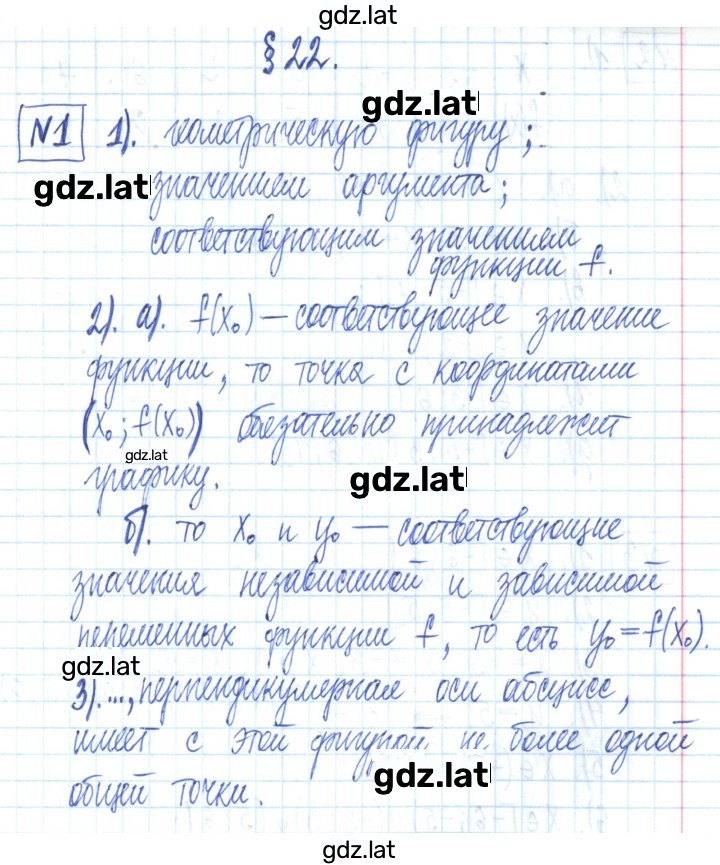 gdz.lat
§ 22.
gdz.lat
№1 1). геометрическую фигуру;
gdz.lat значением аргумента;
соответствующим значением
функции f.
2). а). f(x₀) — соответствующее значение
функции, то точка с координатами
(x₀; f(x₀)) обязательно принадлежит
gdz.lat
графику.
gdz.lat
б). то x₀ и y₀ — соответствующие
значения независимой и зависимой
переменных функции f, то есть y₀ = f(x₀).
gdz.lat
3). ..., перпендикулярная оси абсцисс,
имеет с этой фигурой не более одной
gdz.lat
общей точки.
gdz.lat